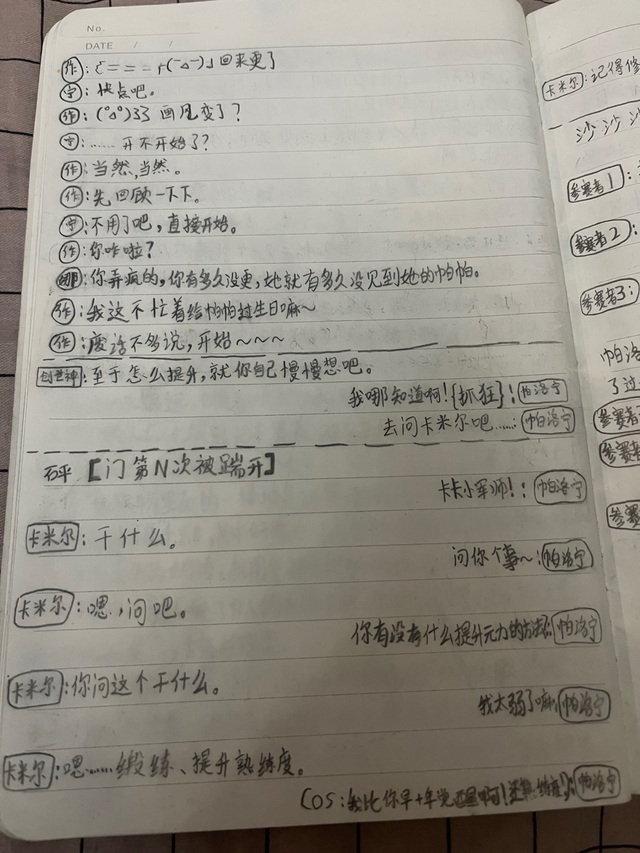 No.
DATE / /
作: ξ===┏(-△-)┛回来更了
宇: 快点吧。
作: (°△°)33 画风变了?
宇: ……开不开始了?
作: 当然,当然。
作: 先回顾一下下。
宇: 不用了吧,直接开始。
作: 你咋啦?
娜: 你弄疯的,你有多久没更,她就有多久没见到她的帕帕。
作: 我这不忙着给帕帕过生日嘛~
作: 废话不多说,开始~~~
创世神: 至于怎么提升,就你自己慢慢想吧。
我哪知道啊!{抓狂}: 帕洛宁
去问卡米尔吧……: 帕洛宁
砰 [门第N次被踹开]
卡卡小军师!: 帕洛宁
卡米尔: 干什么。
问你个事~: 帕洛宁
卡米尔: 嗯,问吧。
你有没有什么提升元力的方法: 帕洛宁
卡米尔: 你问这个干什么。
我太弱了嘛: 帕洛宁
卡米尔: 嗯……锻练、提升熟练度。
(OS:我比你早十年觉醒啊: 帕洛宁
卡米尔: 记得修
沙沙沙
参赛者1:
参赛者2:
参赛者3:
帕洛
了过
参赛者
参赛者
参赛